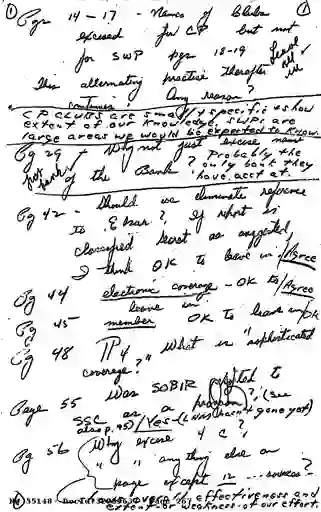 ① ①
Pgs 14-17 - Names of Clubs
excised for CP but not
for SWP pgs 18-19
Leave all in
This alternating practice thereafter
continues. Any reason?
CP CLUBS are small, specific & show
extent of our knowledge. SWPs are
large areas we would be expected to know.
Pg 29 Why not just excise name
of the Bank?
Probably the
only bank they
have acct at.
Pg 42 - Should we eliminate reference
to Elsur? If report is
classified secret as suggested,
I think OK to leave in / Agree
Pg 44 electronic coverage - OK to
leave in / Agree
Pg 45 member OK to leave in / OK
Pg 48 ¶ 4 What is "sophisticated
coverage?"
Page 55 Was SOBIR to
SSC as a program?, (see
also p. 95) / Yes - (hasn't gone yet)
Pg 56 Why excise 4 C?
" " anything else on
page except 12 ... sources -
effectiveness and
extent or weakness of our effort.
55148